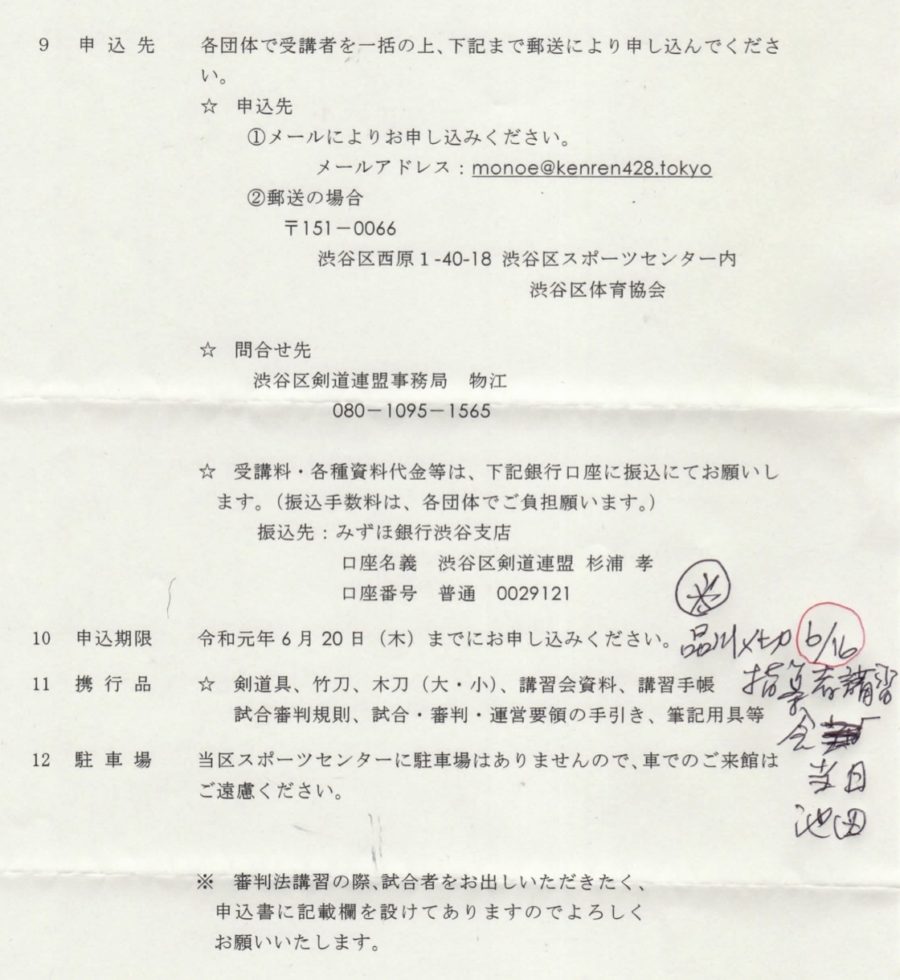 9 申込先 各団体で受講者を一括の上、下記まで郵送により申し込んでくださ
い。
☆ 申込先
①メールによりお申し込みください。
メールアドレス：monoe@kenren428.tokyo
②郵送の場合
〒151－0066
渋谷区西原１-40-18 渋谷区スポーツセンター内
渋谷区体育協会
☆ 問合せ先
渋谷区剣道連盟事務局 物江
080－1095－1565
☆ 受講料・各種資料代金等は、下記銀行口座に振込にてお願いし
ます。（振込手数料は、各団体でご負担願います。）
振込先：みずほ銀行渋谷支店
口座名義 渋谷区剣道連盟 杉浦 孝
口座番号 普通 0029121
※
10 申込期限 令和元年６月20日（木）までにお申し込みください。
品川〆切 6/16
11 携行品 ☆ 剣道具、竹刀、木刀（大・小）、講習会資料、講習手帳
試合審判規則、試合・審判・運営要領の手引き、筆記用具等
指導者講習
会
当日
池田
12 駐車場 当区スポーツセンターに駐車場はありませんので、車でのご来館は
ご遠慮ください。
※ 審判法講習の際、試合者をお出しいただきたく、
申込書に記載欄を設けてありますのでよろしく
お願いいたします。